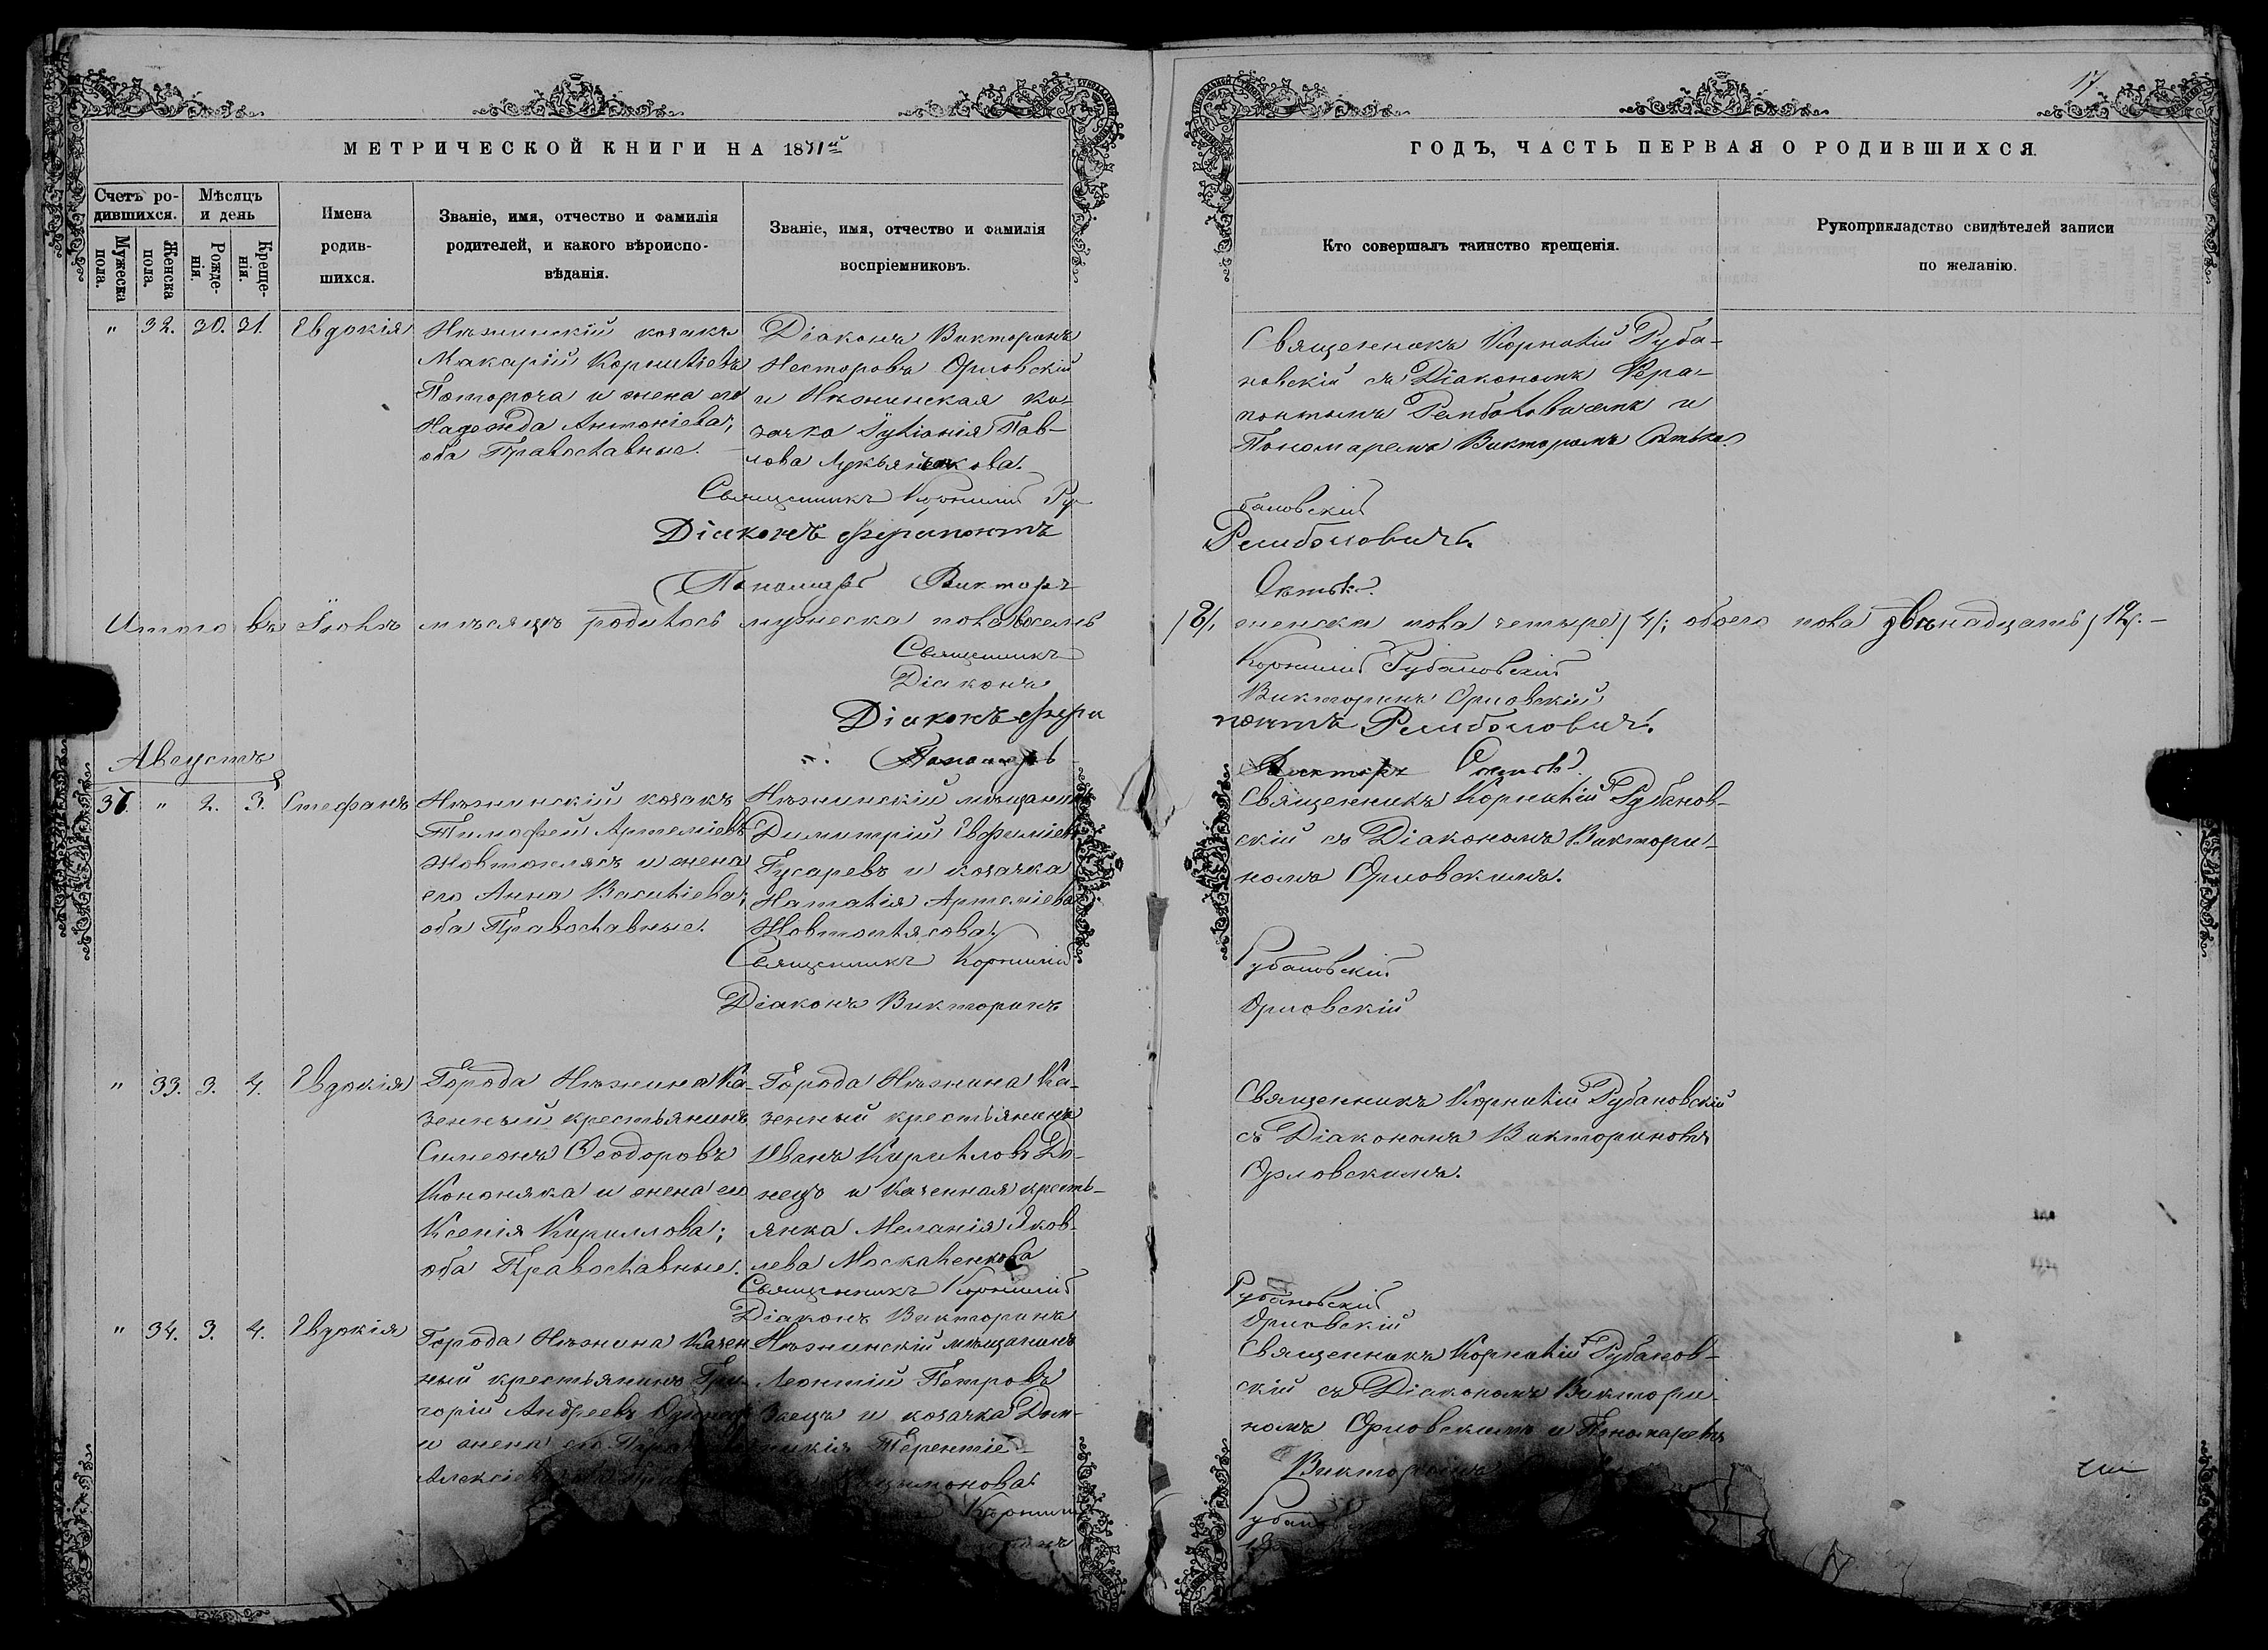 17
МЕТРИЧЕСКОЙ КНИГИ НА 1871й
ГОДЪ, ЧАСТЬ ПЕРВАЯ О РОДИВШИХСЯ.
Счетъ ро-
дившихся.
Мужеска
пола.
Женска
пола.
Мѣсяцъ
и день
Рожде-
нія.
Креще-
нія.
Имена
родив-
шихся.
Званіе, имя, отчество и фамилія
родителей, и какого вѣроиспо-
вѣданія.
Званіе, имя, отчество и фамилія
воспріемниковъ.
Кто совершалъ таинство крещенія.
Рукоприкладство свидѣтелей записи
по желанію.
" 32. 30. 31. Евдокія
Нѣжинскій козакъ
Макарій Корниліевъ
и жена его
Надежда Антоніева;
оба Православные.
Діаконъ Викторинъ
Несторовъ Орловскій
и Нѣжинская ко-
зачка Пав-
лова
Священникъ Корнилій Руба-
новскій съ Діакономъ Фера-
понтомъ и
Пономаремъ Викторомъ
Священникъ Корнилій Ру
бановскій
Діаконъ Ферапонтъ
Пономарь Викторъ
Итого въ Іюлѣ мѣсяцѣ родилось мужеска пола восемь /8/, женска пола четыре /4/; обоего пола двѣнадцать /12/. —
Священникъ Корнилій Рубановскій
Діаконъ Викторинъ Орловскій
Діаконъ Фера
понтъ
Пономарь Викторъ
Августъ
37. " 2. 3. Стефанъ
Нѣжинскій козакъ
Тимофей Артеміевъ
и жена
его Анна Василіева;
оба Православные.
Нѣжинскій мѣщанинъ
Димитрій Евфиміевъ
Гусаревъ и козачка
Наталія Артеміева
Жовтоплясова.
Священникъ Корнилій Рубанов-
скій съ Діакономъ Виктори-
номъ Орловскимъ.
Священникъ Корнилій Рубановскій
Діаконъ Викторинъ Орловскій
" 33. 3. 4. Евдокія
Города Нѣжина Ка-
зенный крестьянинъ
Симеонъ Феодоровъ
Кононяка и жена его
Ксенія Кириллова;
оба Православные.
Города Нѣжина Ка-
зенный крестьянинъ
Иванъ Кирилловъ До-
нецъ и Казенная кресть-
янка Меланія Яков-
лева Москаленкова
Священникъ Корнилій Рубановскій
съ Діакономъ Викториномъ
Орловскимъ.
Священникъ Корнилій Рубановскій
Діаконъ Викторинъ Орловскій
" 34. 3. 4. Евдокія
Города Нѣжина Казен
ный крестьянинъ Гри-
горій Андреевъ
и жена его
Нѣжинскій мѣщанинъ
Леонтій Петровъ
Заецъ и козачка Дом-
никія Терентіе-
Священникъ Корнилій Рубанов-
скій съ Діакономъ Виктори-
номъ Орловскимъ и Пономаремъ
Викторомъ
Корнилій